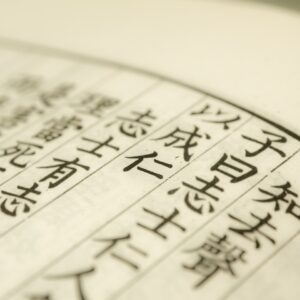 知去聲
子曰志士仁人
以成仁
志士有志
理當死
是